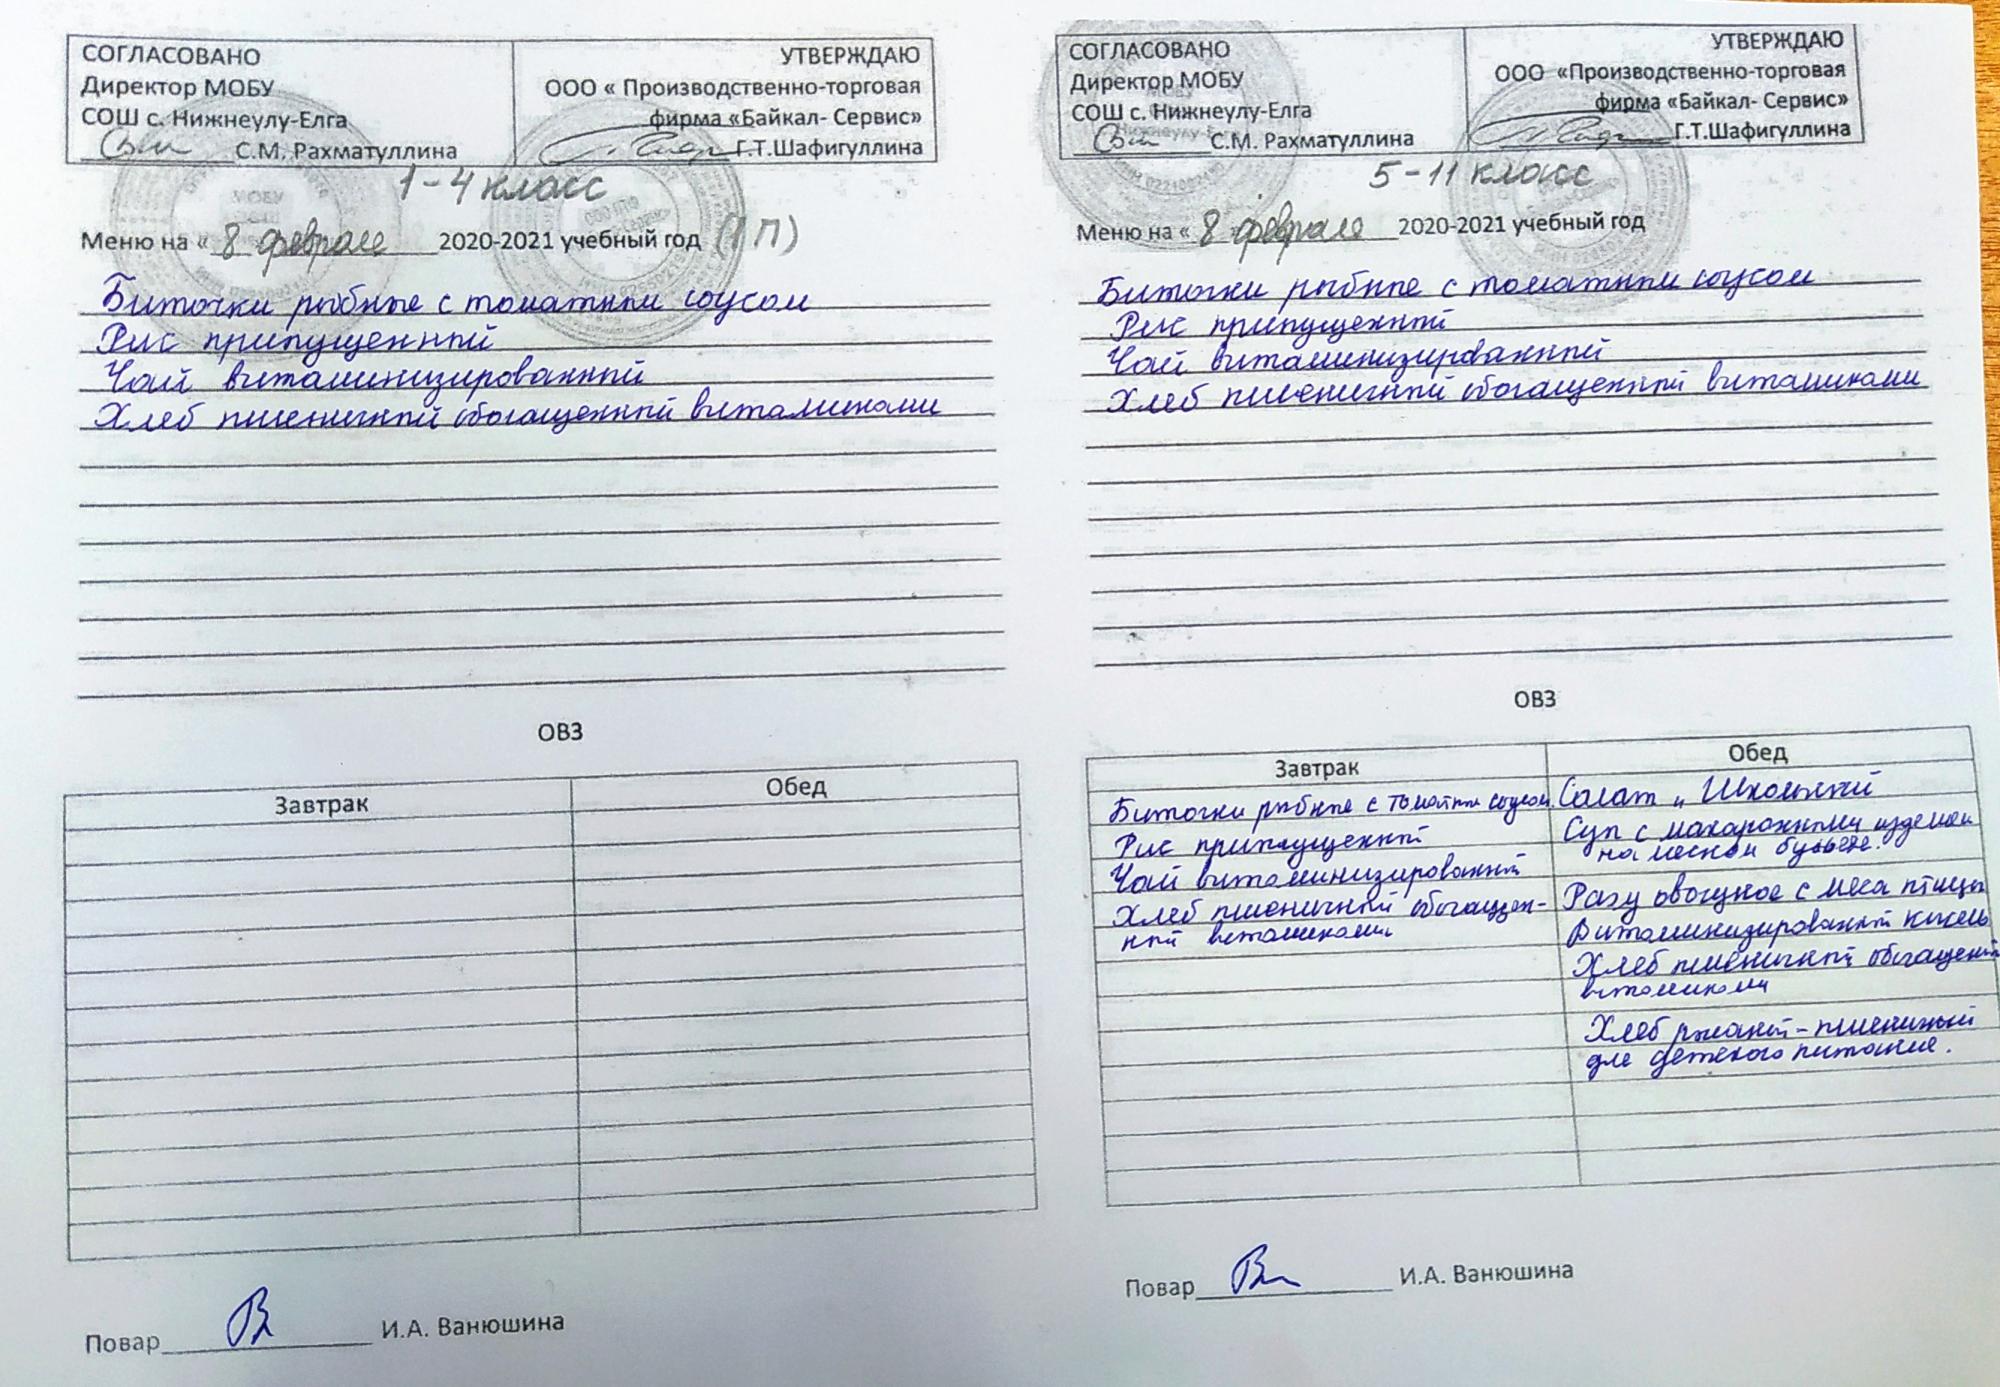 СОГЛАСОВАНО
Директор МОБУ
СОШ с. Нижнеулу-Елга
С.М. Рахматуллина
УТВЕРЖДАЮ
ООО « Производственно-торговая
фирма «Байкал- Сервис»
Г.Т.Шафигуллина
1-4 класс
Меню на « 8 февраля 2020-2021 учебный год (1 П)
Биточки рыбные с томатным соусом
Рис припущенный
Чай витаминизированный
Хлеб пшеничный обогащенный витаминами
ОВЗ
Завтрак
Обед
Повар И.А. Ванюшина
СОГЛАСОВАНО
Директор МОБУ
СОШ с. Нижнеулу-Елга
С.М. Рахматуллина
УТВЕРЖДАЮ
ООО «Производственно-торговая
фирма «Байкал- Сервис»
Г.Т.Шафигуллина
5-11 класс
Меню на « 8 февраля 2020-2021 учебный год
Биточки рыбные с томатным соусом
Рис припущенный
Чай витаминизированный
Хлеб пшеничный обогащенный витаминами
ОВЗ
Завтрак
Биточки рыбные с томатным соусом.
Рис припущенный
Чай витаминизированный
Хлеб пшеничный обогащен-
ный витаминами
Обед
Салат "Школьный
Суп с макаронными изделиями
на мясном бульоне.
Рагу овощное с мяса птицы
Витаминизированный кисель
Хлеб пшеничный обогащенный
витаминами
Хлеб ржаной-пшеничный
для детского питания.
Повар И.А. Ванюшина